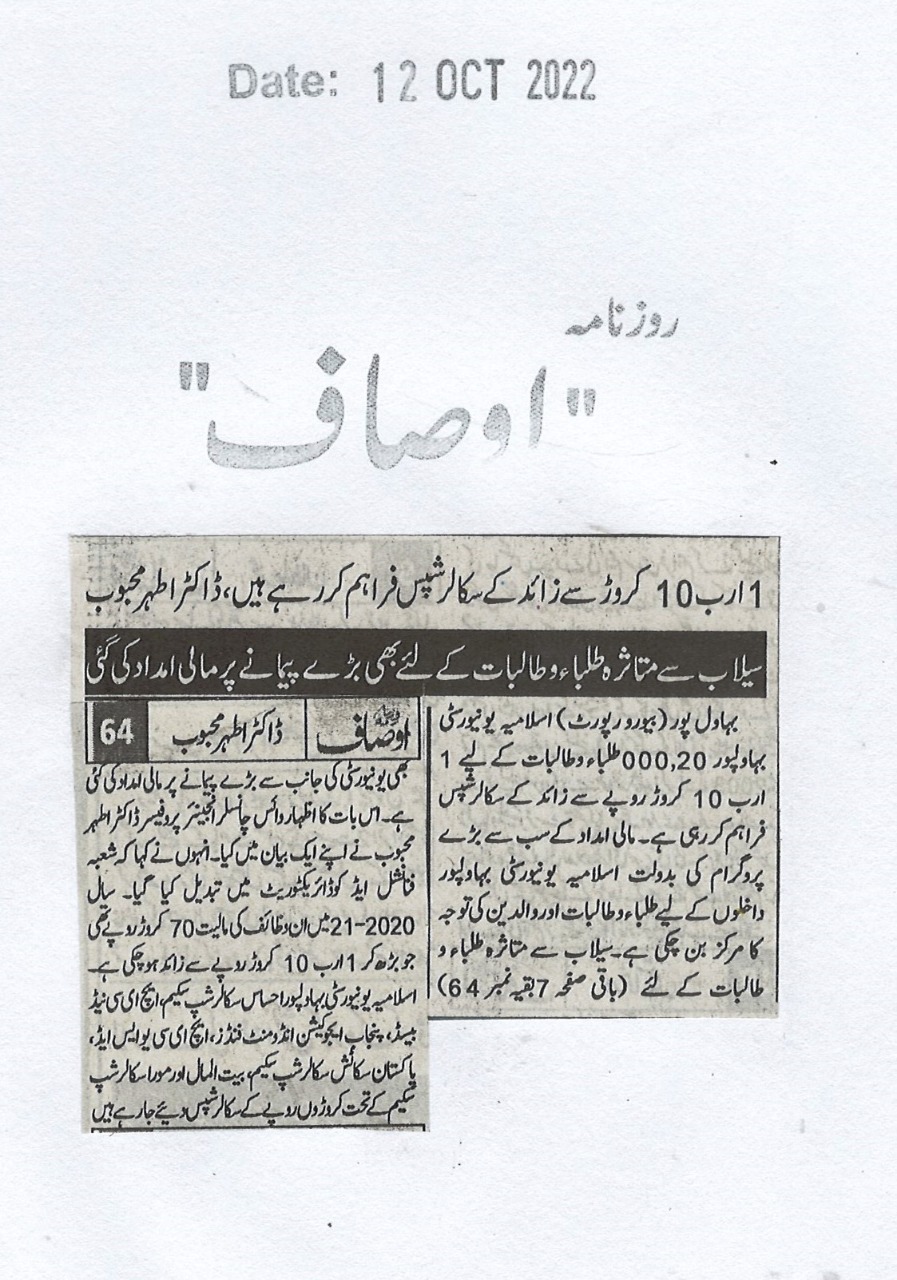 Date: 12 OCT 2022
روزنامہ
"اوصاف"
1 ارب 10 کروڑ سے زائد کے سکالرشپس فراہم کر رہے ہیں، ڈاکٹر اطہر محبوب
سیلاب سے متاثرہ طلباء و طالبات کے لئے بھی بڑے پیمانے پر مالی امداد کی گئی
بہاول پور (بیورو رپورٹ) اسلامیہ یونیورسٹی
بہاولپور 000,20 طلباء و طالبات کے لیے 1
ارب 10 کروڑ روپے سے زائد کے سکالرشپس
فراہم کر رہی ہے۔ مالی امداد کے سب سے بڑے
پروگرام کی بدولت اسلامیہ یونیورسٹی بہاولپور
داخلوں کے لیے طلباء و طالبات اور والدین کی توجہ
کا مرکز بن چکی ہے۔ سیلاب سے متاثرہ طلباء و
طالبات کے لئے (باقی صفحہ 7 بقیہ نمبر 64)
اوصاف
ڈاکٹر اطہر محبوب
64
بھی یونیورسٹی کی جانب سے بڑے پیمانے پر مالی امداد کی گئی
ہے۔ اس بات کا اظہار وائس چانسلر انجینئر پروفیسر ڈاکٹر اطہر
محبوب نے اپنے ایک بیان میں کیا۔ انہوں نے کہا کہ شعبہ
فنانشل ایڈ کو ڈائریکٹوریٹ میں تبدیل کیا گیا۔ سال
2020-21 میں ان وظائف کی مالیت 70 کروڑ روپے تھی
جو بڑھ کر 1 ارب 10 کروڑ روپے سے زائد ہو چکی ہے۔
اسلامیہ یونیورسٹی بہاولپور احساس سکالرشپ سکیم، ایچ ای سی نیڈ
بیسڈ، پنجاب ایجوکیشن انڈومنٹ فنڈز، ایچ ای سی یو ایس ایڈ،
پاکستان سکاٹش سکالرشپ سکیم، بیت المال اور مورا سکالرشپ
سکیم کے تحت کروڑوں روپے کے سکالرشپس دیئے جا رہے ہیں